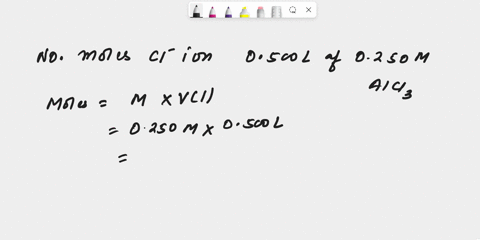 No. moles Cl⁻ ion 0.500L of 0.250M
AlCl₃
Moles = M x V(l)
= 0.250 M x 0.500L
=